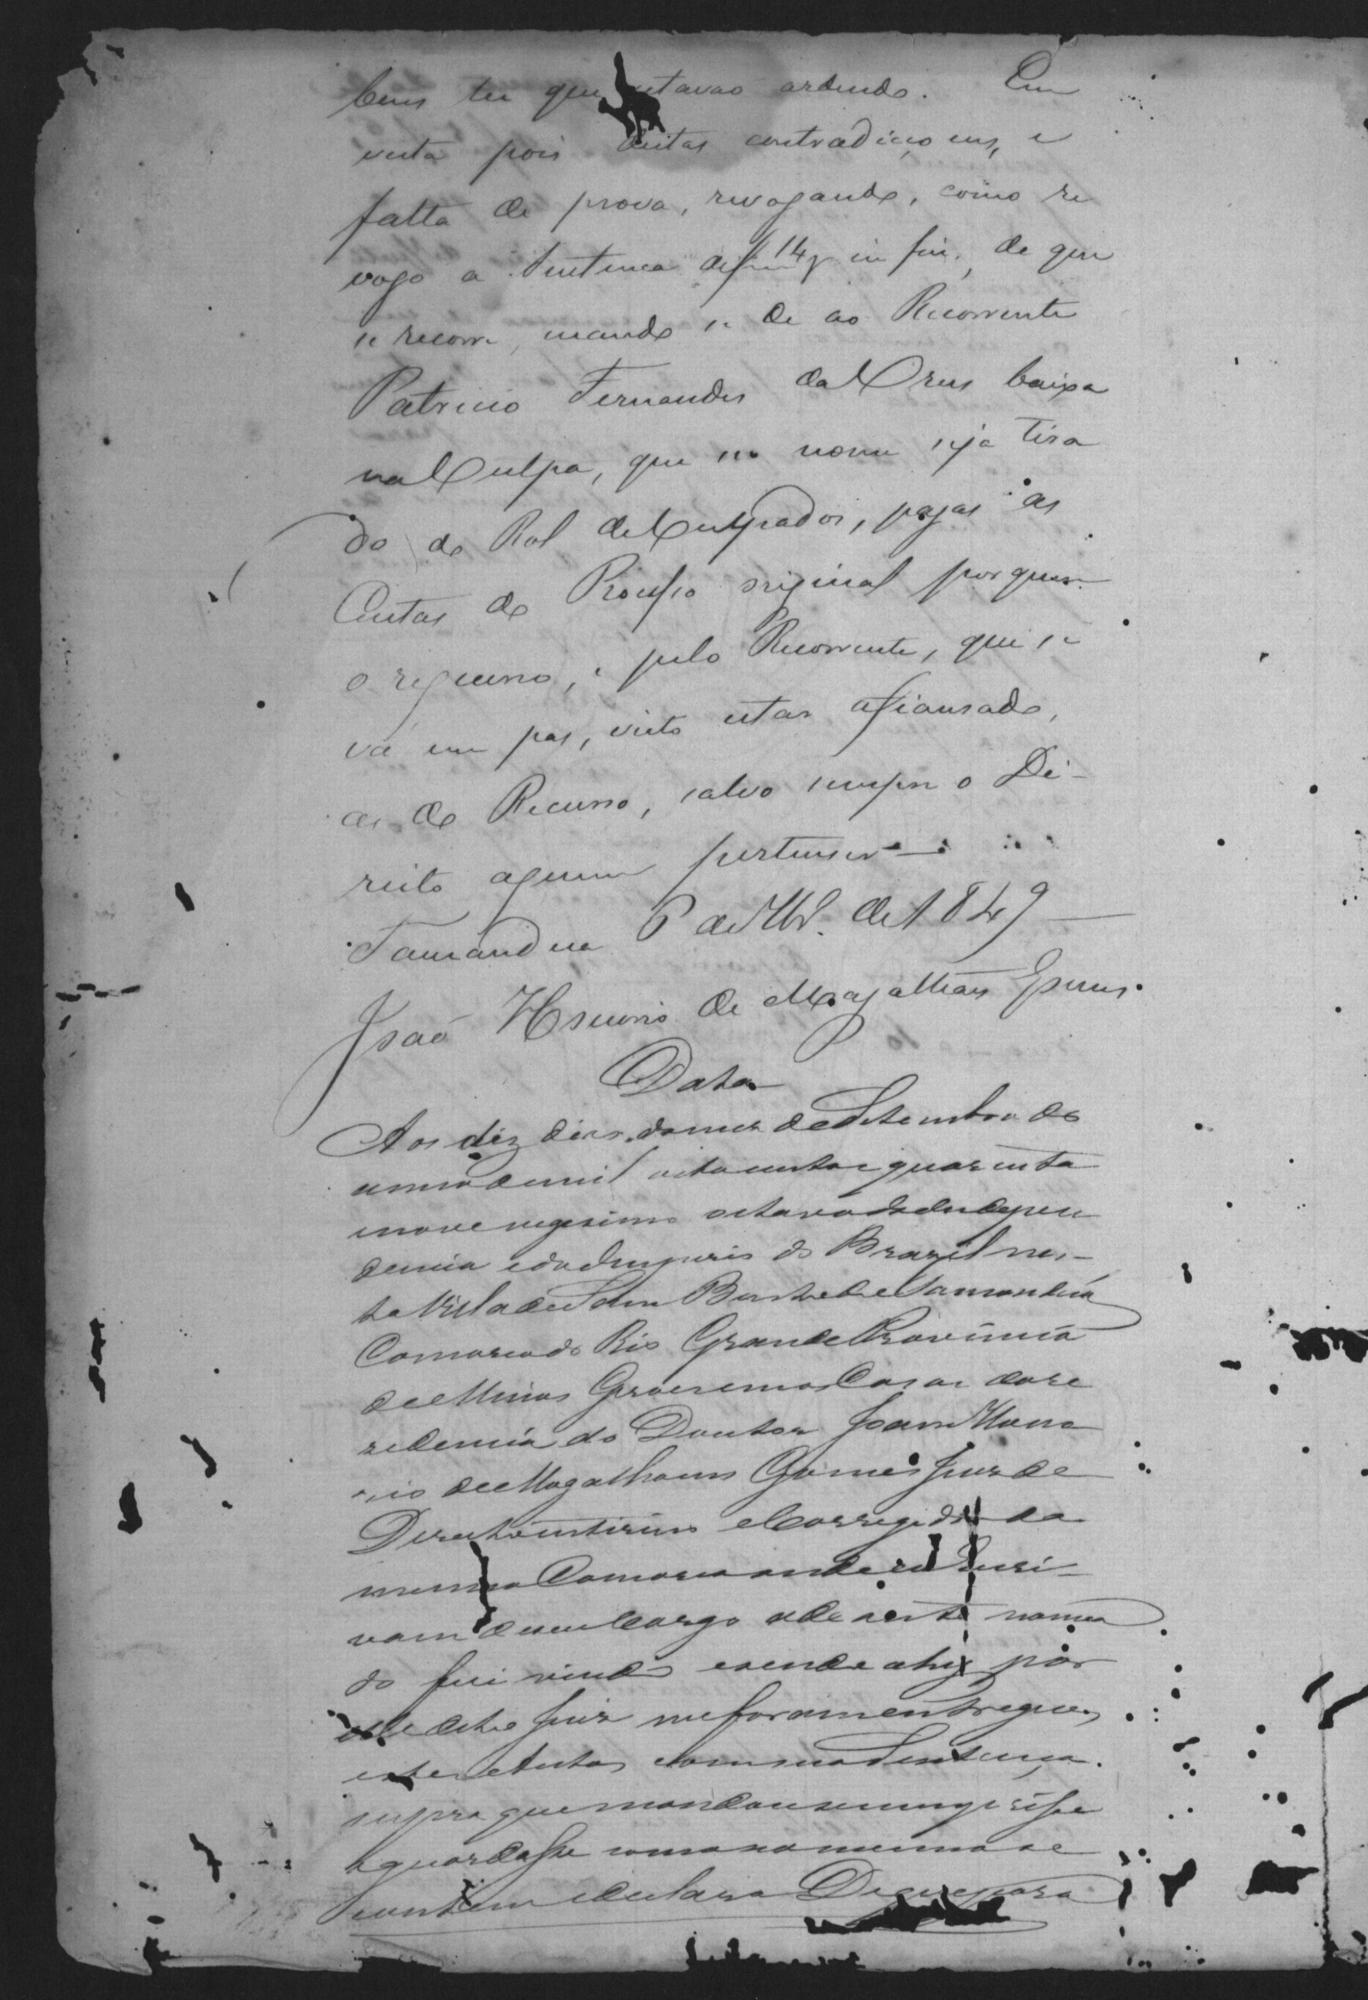 bens ter que estavaõ ardendo. Em
vista pois destas contradiçoens, e
falta de prova, revogando, como re
vogo a Sentença de f 14 in fin, de que
se recorre, mando se dê ao Recorrente
Patricio Fernandes da Crus baixa
na Culpa, que seo nome seja tira
do do Rol de Culpados, pagas as
Custas do Processo original por quem
o requereo, e pelo Recorrente, que se
vá em pas, visto estar afiansado,
as do Recurso, salvo sempre o Di-
reito aquem pertenser
Tamandua 6 de 7br. de 1849
Joaõ Honorio de Magalhães Gomes.
Data
Aos dez dias do mes de Setembro do
anno de mil oito centos e quarenta
e nove vegesimo oitavo da Independ
dencia e do Imperio do Brazil nes-
ta Villa de Sam Bento de Tamanduá
Comarca do Rio Grande Provincia
de Minas Geraes em as Casas da re
zidencia do Doutor Joam Hono
rio de Magalhaens Gomes Juiz de
Direito intirino e Corregedor da
mesma Comarca onde eu Escri-
vam de seu Cargo adiante nomea
do fui vindo e sendo ahy por
elle dito Juiz me foram entregues
estes Autos com sua Sentença
supra que mandou se cumprisse
e guardasse como na mesma se
contem e declara De que para